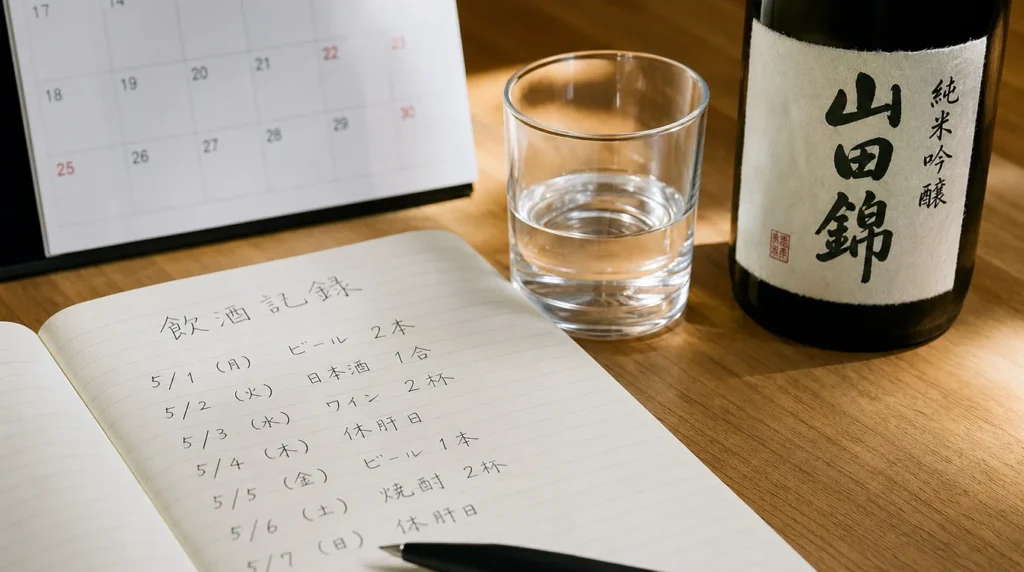 17
14
22
23
18
19
20
21
25
26
27
28
29
30
飲酒記録
5/1 (月) ビール 2本
5/2 (火) 日本酒 1合
5/3 (水) ワイン 2杯
5/4 (木) 休肝日
5/5 (金) ビール 1本
5/6 (土) 焼酎 2杯
5/7 (日) 休肝日
純米吟醸
山田錦